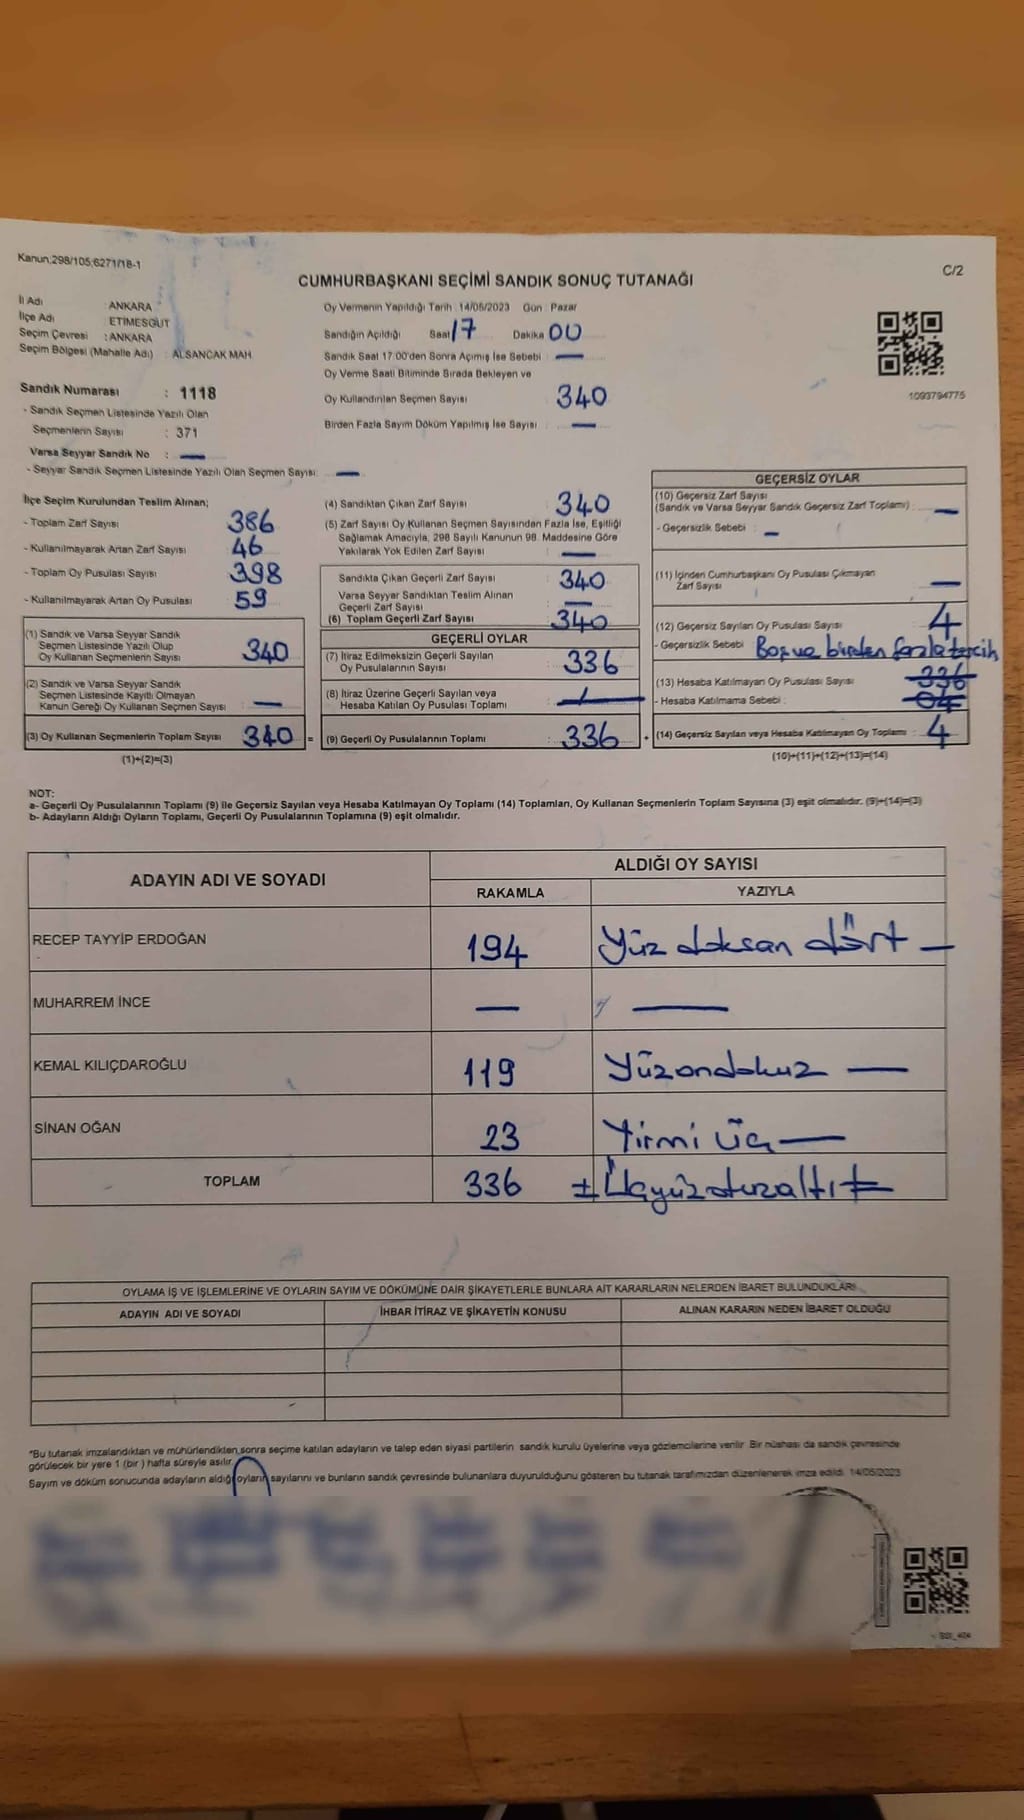 Kanun;298/105;6271/18-1
C/2
CUMHURBAŞKANI SEÇİMİ SANDIK SONUÇ TUTANAĞI
İl Adı : ANKARA
İlçe Adı : ETİMESGUT
Seçim Çevresi : ANKARA
Seçim Bölgesi (Mahalle Adı) : ALSANCAK MAH.
Oy Vermenin Yapıldığı Tarih : 14/05/2023 Gün : Pazar
Sandığın Açıldığı Saat 17 Dakika 00
Sandık Saat 17:00'den Sonra Açımış İse Sebebi : —
Oy Verme Saati Bitiminde Sırada Bekleyen ve
Oy Kullandırılan Seçmen Sayısı 340
Birden Fazla Sayım Döküm Yapılmış İse Sayısı : —
1093794775
Sandık Numarası : 1118
- Sandık Seçmen Listesinde Yazılı Olan
Seçmenlerin Sayısı : 371
Varsa Seyyar Sandık No : —
- Seyyar Sandık Seçmen Listesinde Yazılı Olan Seçmen Sayısı: —
İlçe Seçim Kurulundan Teslim Alınan;
- Toplam Zarf Sayısı 386
- Kullanılmayarak Artan Zarf Sayısı 46
- Toplam Oy Pusulası Sayısı 398
- Kullanılmayarak Artan Oy Pusulası 59
(1) Sandık ve Varsa Seyyar Sandık
Seçmen Listesinde Yazılı Olup
Oy Kullanan Seçmenlerin Sayısı 340
(2) Sandık ve Varsa Seyyar Sandık
Seçmen Listesinde Kayıtlı Olmayan
Kanun Gereği Oy Kullanan Seçmen Sayısı : —
(3) Oy Kullanan Seçmenlerin Toplam Sayısı 340 =
(1)+(2)=(3)
(4) Sandıktan Çıkan Zarf Sayısı 340
(5) Zarf Sayısı Oy Kullanan Seçmen Sayısından Fazla İse, Eşitliği
Sağlamak Amacıyla; 298 Sayılı Kanunun 98. Maddesine Göre
Yakılarak Yok Edilen Zarf Sayısı : —
Sandıkta Çıkan Geçerli Zarf Sayısı 340
Varsa Seyyar Sandıktan Teslim Alınan
Geçerli Zarf Sayısı : —
(6) Toplam Geçerli Zarf Sayısı : 340
GEÇERLİ OYLAR
(7) İtiraz Edilmeksizin Geçerli Sayılan
Oy Pusulalarının Sayısı : 336
(8) İtiraz Üzerine Geçerli Sayılan veya
Hesaba Katılan Oy Pusulası Toplamı : —
(9) Geçerli Oy Pusulalarının Toplamı : 336 +
GEÇERSİZ OYLAR
(10) Geçersiz Zarf Sayısı
(Sandık ve Varsa Seyyar Sandık Geçersiz Zarf Toplamı) : —
- Geçersizlik Sebebi : —
(11) İçinden Cumhurbaşkanı Oy Pusulası Çıkmayan
Zarf Sayısı : —
(12) Geçersiz Sayılan Oy Pusulası Sayısı : 4
- Geçersizlik Sebebi : Boş ve birden fazla tercih
(13) Hesaba Katılmayan Oy Pusulası Sayısı : 336
- Hesaba Katılmama Sebebi : 04
(14) Geçersiz Sayılan veya Hesaba Katılmayan Oy Toplamı : 4
(10)+(11)+(12)+(13)=(14)
NOT:
a- Geçerli Oy Pusulalarının Toplamı (9) ile Geçersiz Sayılan veya Hesaba Katılmayan Oy Toplamı (14) Toplamları, Oy Kullanan Seçmenlerin Toplam Sayısına (3) eşit olmalıdır. (9)+(14)=(3)
b- Adayların Aldığı Oyların Toplamı, Geçerli Oy Pusulalarının Toplamına (9) eşit olmalıdır.
ADAYIN ADI VE SOYADI
ALDIĞI OY SAYISI
RAKAMLA YAZIYLA
RECEP TAYYİP ERDOĞAN 194 Yüz doksan dört —
MUHARREM İNCE — —
KEMAL KILIÇDAROĞLU 119 Yüzondokuz —
SİNAN OĞAN 23 Yirmi üç —
TOPLAM 336 ± Üçyüzotuzaltı ±
OYLAMA İŞ VE İŞLEMLERİNE VE OYLARIN SAYIM VE DÖKÜMÜNE DAİR ŞİKAYETLERLE BUNLARA AİT KARARLARIN NELERDEN İBARET BULUNDUKLARI
ADAYIN ADI VE SOYADI İHBAR İTİRAZ VE ŞİKAYETİN KONUSU ALINAN KARARIN NEDEN İBARET OLDUĞU
*Bu tutanak imzalandıktan ve mühürlendikten sonra seçime katılan adayların ve talep eden siyasi partilerin sandık kurulu üyelerine veya gözlemcilerine verilir. Bir nüshası da sandık çevresinde
görülecek bir yere 1 (bir ) hafta süreyle asılır.
Sayım ve döküm sonucunda adayların aldığı oyların sayılarını ve bunların sandık çevresinde bulunanlara duyurulduğunu gösteren bu tutanak tarafımızdan düzenlenerek imza edildi. 14/05/2023